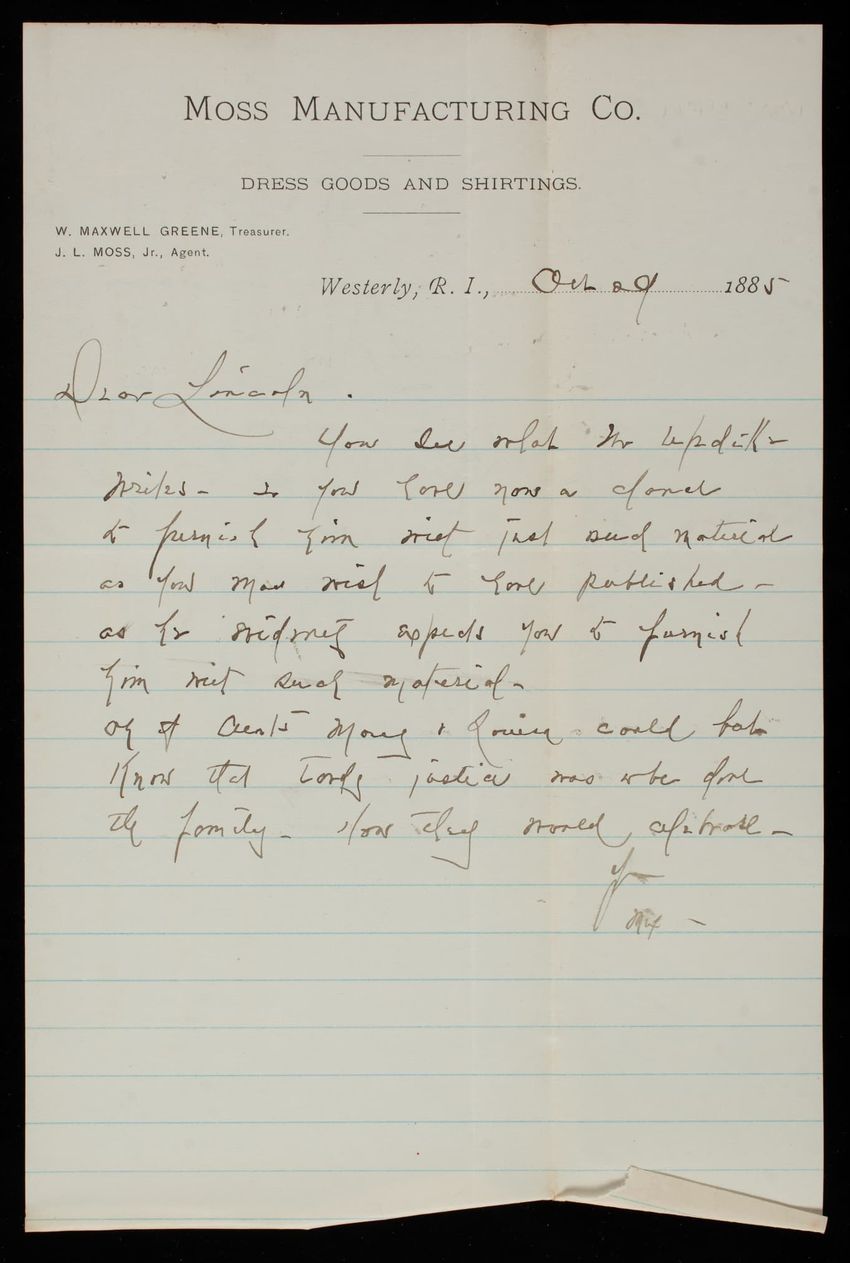 MOSS MANUFACTURING CO.
DRESS GOODS AND SHIRTINGS.
W. MAXWELL GREENE, Treasurer.
J. L. MOSS, Jr., Agent.
Westerly, R. I., Oct 29 1885
Dear Lincoln.
You see what Mr Updike
writes - & you have now a chance
to furnish him with just such material
as you may wish to have published -
as he evidently expects you to furnish
him with such material -
Oh if Aunts Mary & Louisa could but
Know that tardy justice was to be done
the family - How they would
Yrs
Mx -